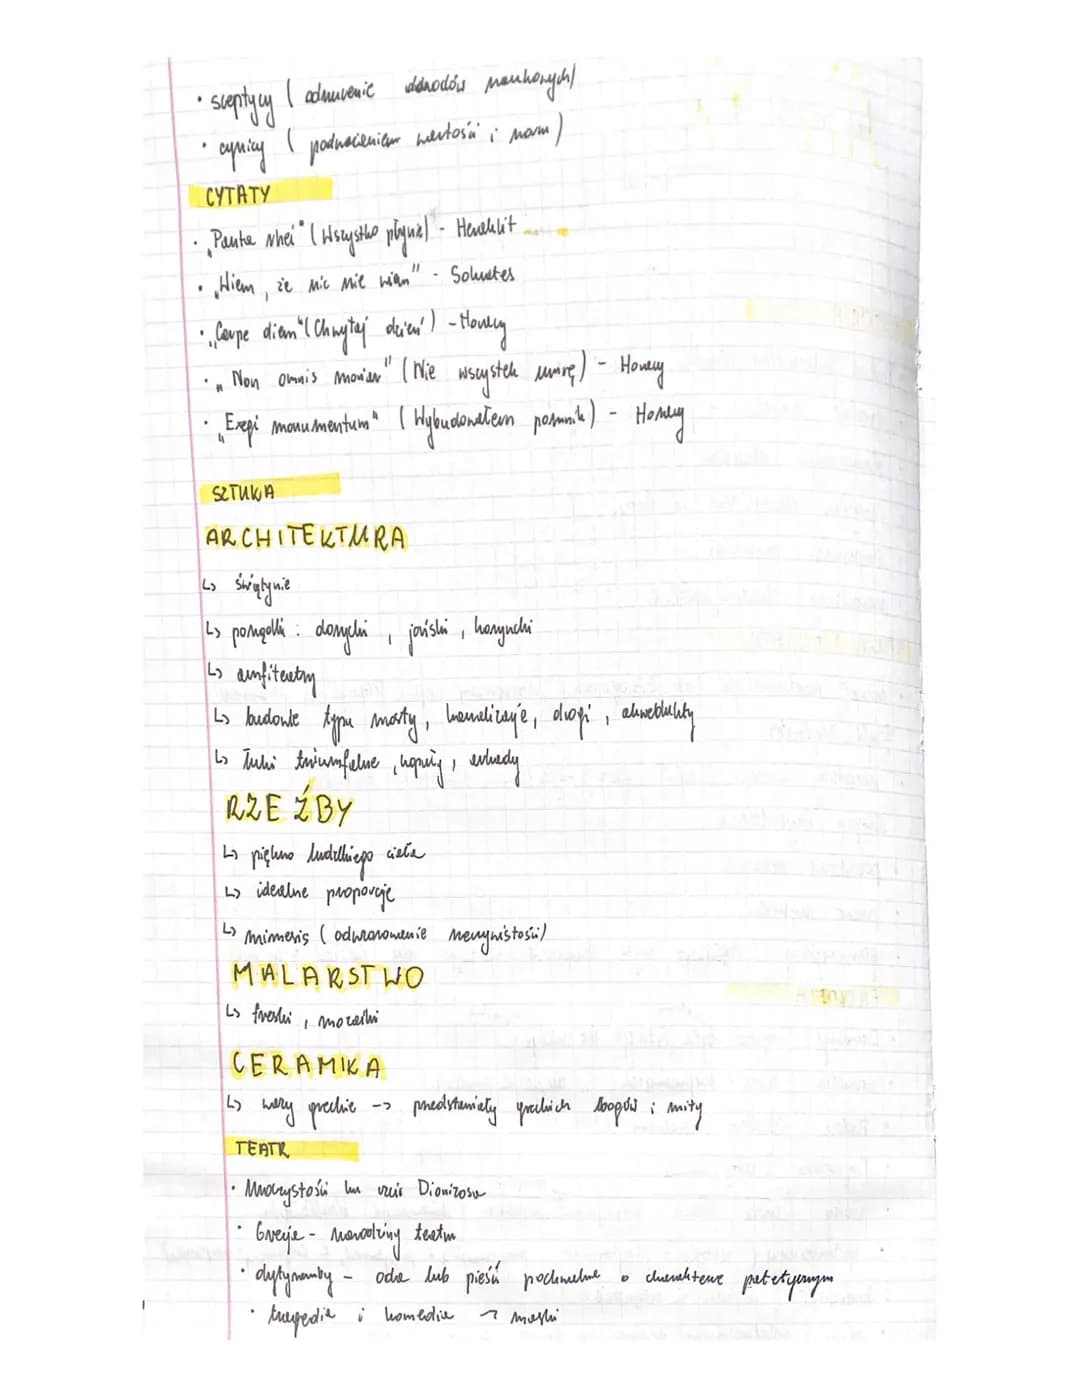 • sceptycy ( odrzucenie dowodów naukowych)
• cynicy ( podważeniem wartości i norm )
CYTATY
• „Panta rhei" (Wszystko płynie) - Heraklit
• „Wiem, że nic nie wiem" - Sokrates
• „Carpe diem" (Chwytaj dzień) - Horacy
• „Non omnis moriar" (Nie wszystek umrę) - Horacy
• „Exegi monumentum" (Wybudowałem pomnik) - Horacy
SZTUKA
ARCHITEKTURA
↳ świątynie
↳ porządki : dorycki , joński , koryncki
↳ amfiteatry
↳ budowle typu mosty, kanalizacje, drogi , akwedukty
↳ łuki triumfalne , kopuły, arkady
RZEŹBY
↳ piękno ludzkiego ciała
↳ idealne proporcje
↳ mimesis ( odwzorowanie rzeczywistości)
MALARSTWO
↳ freski , mozaiki
CERAMIKA
↳ wazy greckie -> przedstawiały greckich bogów i mity
TEATR
• Uroczystości ku czci Dionizosa
• Grecja - narodziny teatru
• dytyramby - oda lub pieśń pochwalna o charakterze patetycznym
• tragedia i komedia → maski